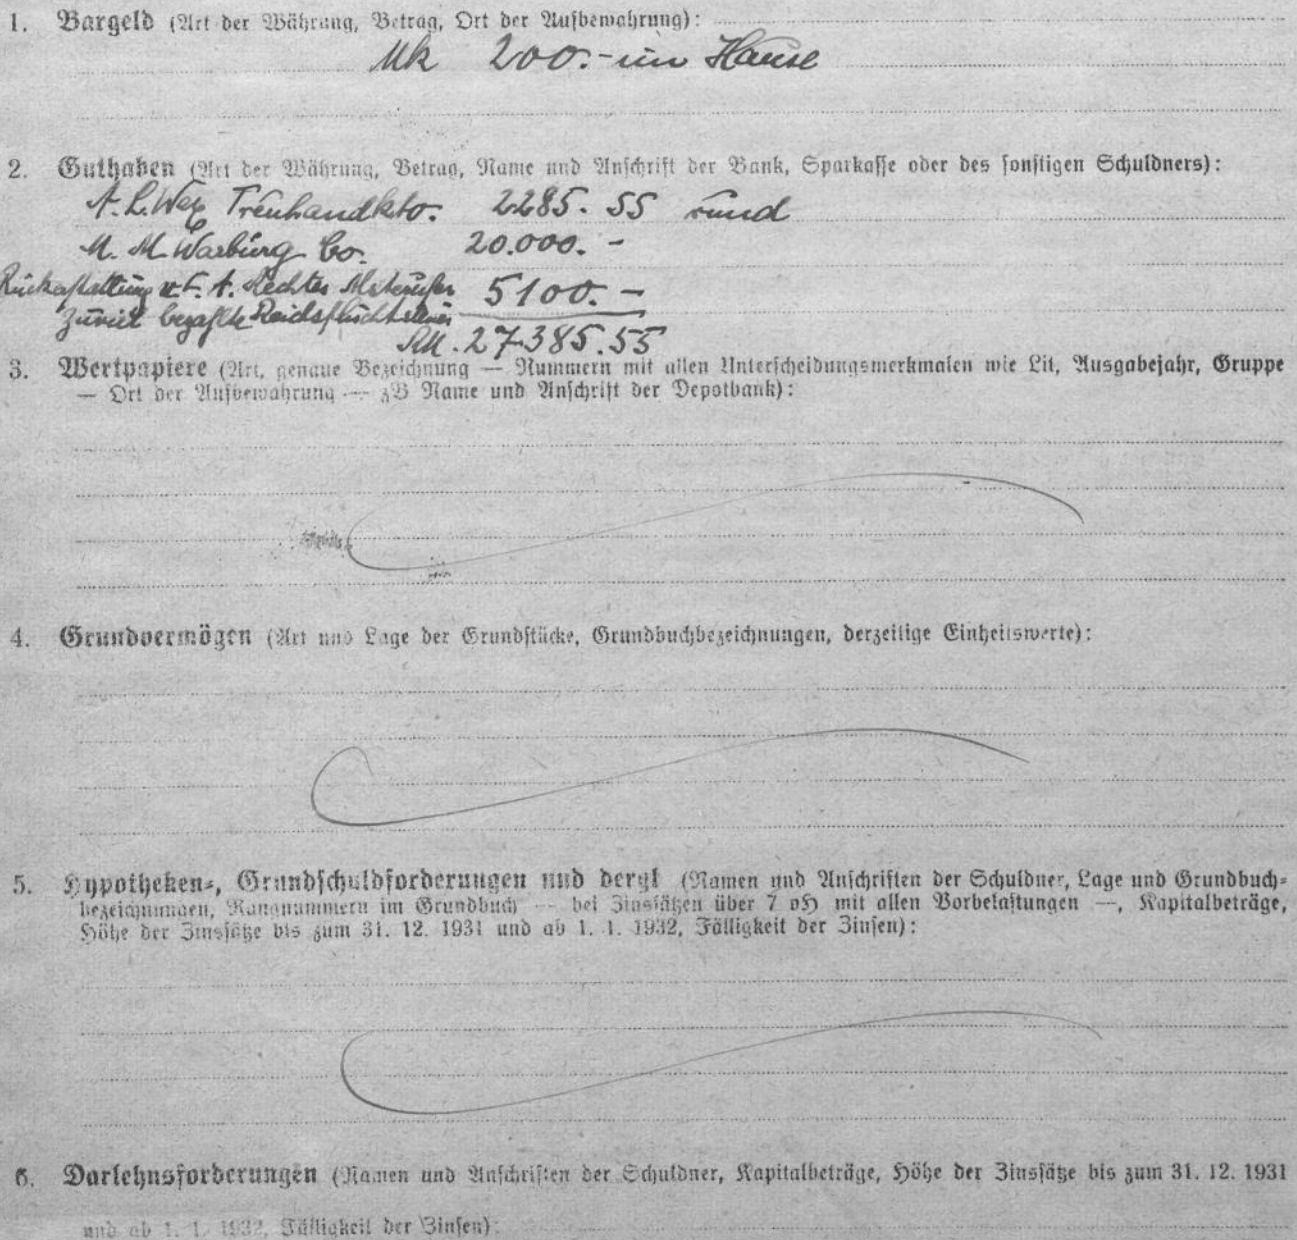 1. Bargeld (Art der Währung, Betrag, Ort der Aufbewahrung):
Mk 200.- im Hause
2. Guthaben (Art der Währung, Betrag, Name und Anschrift der Bank, Sparkasse oder des sonstigen Schuldners):
A. L. Wex Treuhandkto. 2285.55 rund
M. M. Warburg Co. 20.000.-
Rückerstattung F. A. Rechtes Alsterufer 5100.-
zuviel bezahlte Reichsfluchtsteuer
RM. 27.385.55
3. Wertpapiere (Art, genaue Bezeichnung — Nummern mit allen Unterscheidungsmerkmalen wie Lit, Ausgabejahr, Gruppe
— Ort der Aufbewahrung — zB Name und Anschrift der Depotbank):
4. Grundvermögen (Art und Lage der Grundstücke, Grundbuchbezeichnungen, derzeitige Einheitswerte):
5. Hypotheken-, Grundschuldforderungen und dergl (Namen und Anschriften der Schuldner, Lage und Grundbuch-
bezeichnungen, Rangnummern im Grundbuch — bei Zinssätzen über 7 vH mit allen Vorbelastungen —, Kapitalbeträge,
Höhe der Zinssätze bis zum 31. 12. 1931 und ab 1. 1. 1932, Fälligkeit der Zinsen):
6. Darlehnsforderungen (Namen und Anschriften der Schuldner, Kapitalbeträge, Höhe der Zinssätze bis zum 31. 12. 1931
und ab 1. 1. 1932, Fälligkeit der Zinsen):